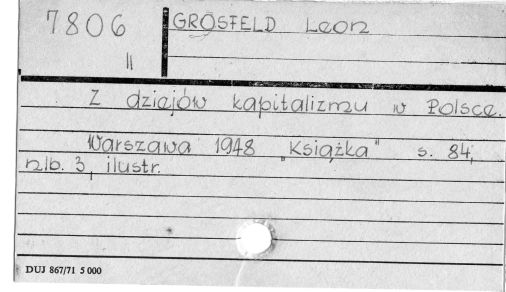 7806
II
GROSFELD Leon
Z dziejów kapitalizmu w Polsce.
Warszawa 1948 "Książka" s. 84,
nlb. 3, ilustr.
DUJ 867/71 5 000